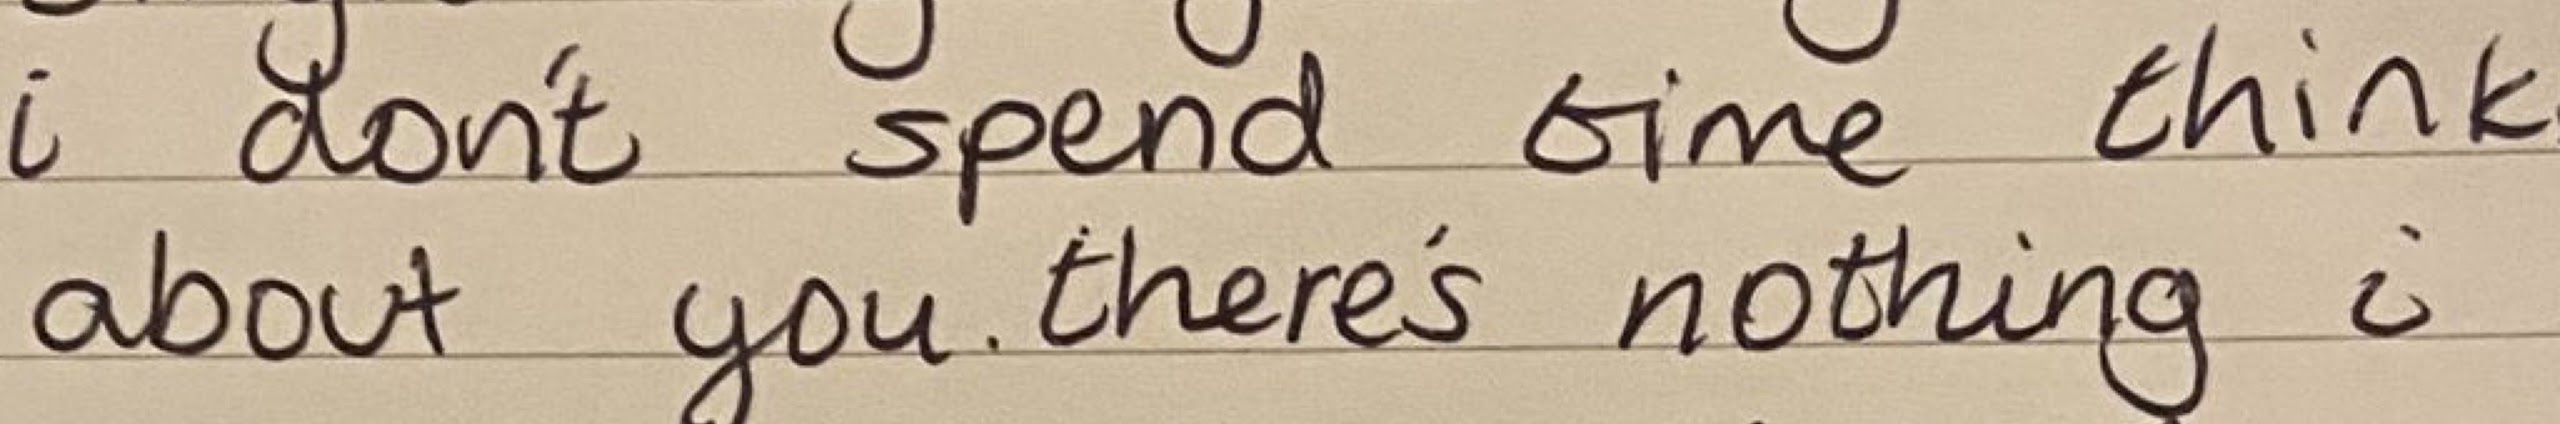 i don't spend time think
about you. there's nothing i